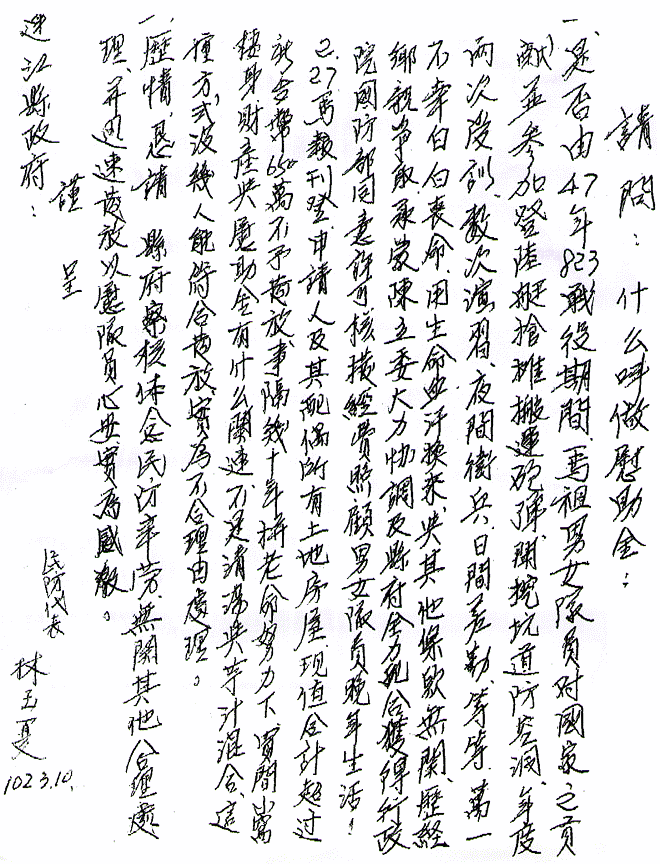 請問：什么叫做慰助金：
一、是否由47年823戰役期間、馬祖男女隊員对國家之貢
献、並參加登陸艇搶摊搬運砲彈、開挖坑道防空洞、年度
兩次役訓、數次演習、夜間衛兵、日間差勤、等等、萬一
不幸白白喪命、用生命血汗換來、与其他條款無關、歷経
鄉親爭取承蒙陳立委大力协調及縣府全力配合獲得行政
院國防部同意許可核撥經費照顧男女隊員晚年生活！
2. 2.27馬報刊登、申請人及其配偶所有土地房屋現值合計超过
新台幣650萬不予發放、事隔幾十年拼老命努力下、買間小窩
棲身財產与慰助金有什么關連、不是清湯与芋汁混合、這
種方式、沒幾人能符合發放、實為不合理由處理。
一、歷情、恳請 縣府察核体念民防辛劳、無關其他合理處
理、并迅速發放以慰隊員心安實為感激。
謹 呈
連江縣政府：
民防代表
林玉夏
102.3.10.